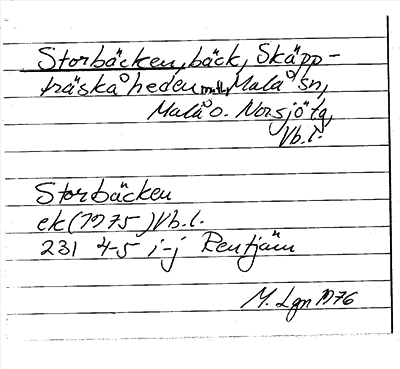 Storbäcken, bäck, Skäpp-
träskåheden m.fl., Malå sn,
Malå o. Norsjö tg,
Vb.l.
Storbäcken
ek (1975) Vb.l.
231 4-5 i-j Rentjärn
M. Lgn 1976